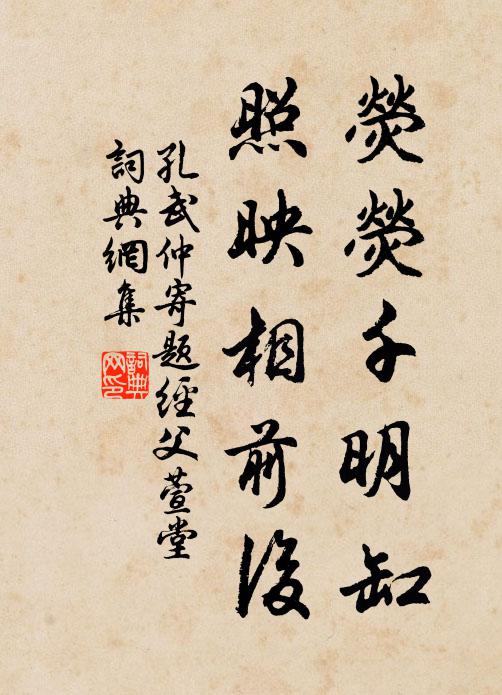 熒熒千明缸
照映相前後
孔武仲寄題經父萱堂
詞典網集
詞典網印